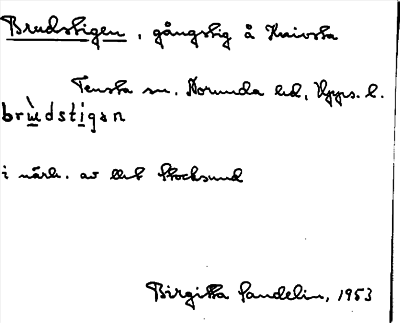 Brudstigen, gångstig å Knivsta
Tensta sn. Norunda hd, Upps. l.
brùdstigan
i närh. av Stocksund
Birgitta Sandelin, 1953